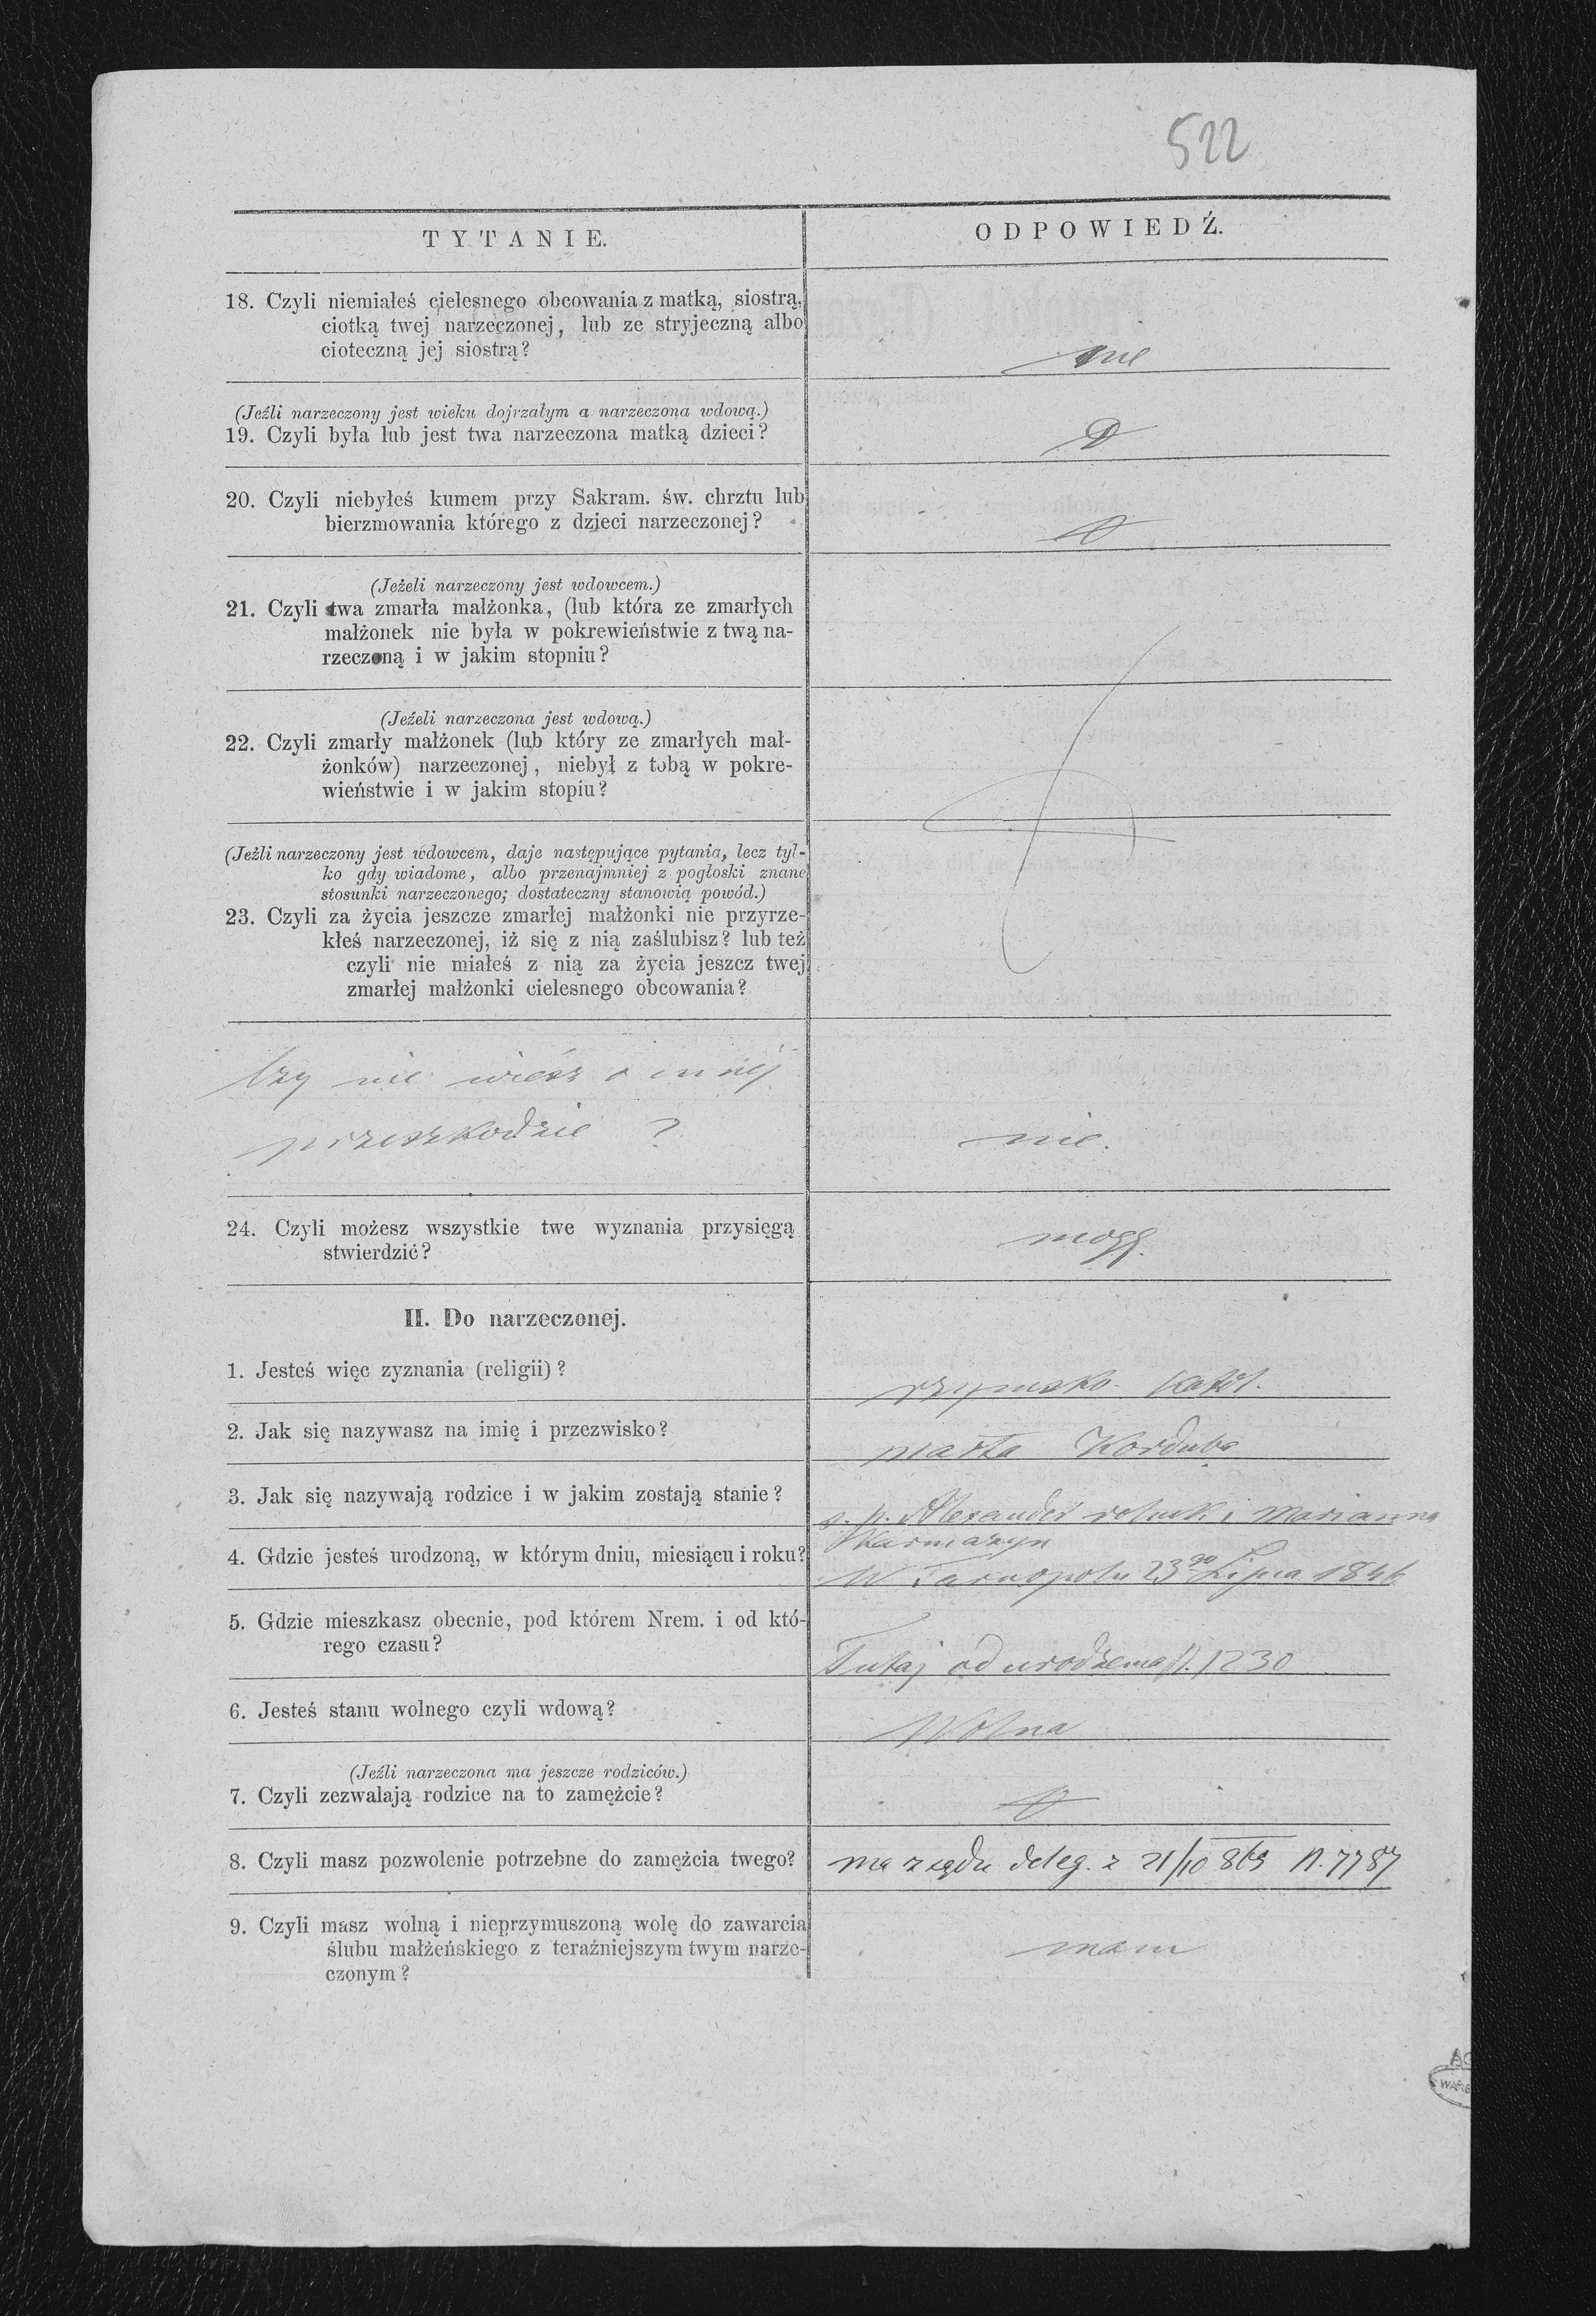 522
TYTANIE.
ODPOWIEDŹ.
18. Czyli niemiałeś cielesnego obcowania z matką, siostrą,
ciotką twej narzeczonej, lub ze stryjeczną albo
cioteczną jej siostrą?
nie
(Jeźli narzeczony jest wieku dojrzałym a narzeczona wdową.)
19. Czyli była lub jest twa narzeczona matką dzieci?
20. Czyli niebyłeś kumem przy Sakram. św. chrztu lub
bierzmowania którego z dzieci narzeczonej?
(Jeżeli narzeczony jest wdowcem.)
21. Czyli twa zmarła małżonka, (lub która ze zmarłych
małżonek nie była w pokrewieństwie z twą na-
rzeczoną i w jakim stopniu?
(Jeżeli narzeczona jest wdową.)
22. Czyli zmarły małżonek (lub który ze zmarłych mał-
żonków) narzeczonej, niebył z tobą w pokre-
wieństwie i w jakim stopiu?
(Jeżli narzeczony jest wdowcem, daje następujące pytania, lecz tyl-
ko gdy wiadome, albo przenajmniej z pogłoski znane
stosunki narzeczonego; dostateczny stanowią powód.)
23. Czyli za życia jeszcze zmarłej małżonki nie przyrze-
kłeś narzeczonej, iż się z nią zaślubisz? lub też
czyli nie miałeś z nią za życia jeszcz twej
zmarłej małżonki cielesnego obcowania?
Czy nie wiesz o innej
przeszkodzie ?
nie.
24. Czyli możesz wszystkie twe wyznania przysięgą
stwierdzić?
mogę.
II. Do narzeczonej.
1. Jesteś więc zyznania (religii)?
rzymsko katol.
2. Jak się nazywasz na imię i przezwisko?
Marta Korduba
3. Jak się nazywają rodzice i w jakim zostają stanie?
s. p. Alexander rolnik i Marianna
Karmazyn
4. Gdzie jesteś urodzoną, w którym dniu, miesiącu i roku?
W Tarnopolu 23go Lipca 1846
5. Gdzie mieszkasz obecnie, pod którem Nrem. i od któ-
rego czasu?
Tutaj od urodzenia N. 1230
6. Jesteś stanu wolnego czyli wdową?
Wolna
(Jeźli narzeczona ma jeszcze rodziców.)
7. Czyli zezwalają rodzice na to zamężcie?
8. Czyli masz pozwolenie potrzebne do zamężcia twego?
ma z sądu deleg. z 21/10 869 N. 7787
9. Czyli masz wolną i nieprzymuszoną wolę do zawarcia
ślubu małżeńskiego z teraźniejszym twym narze-
czonym?
mam